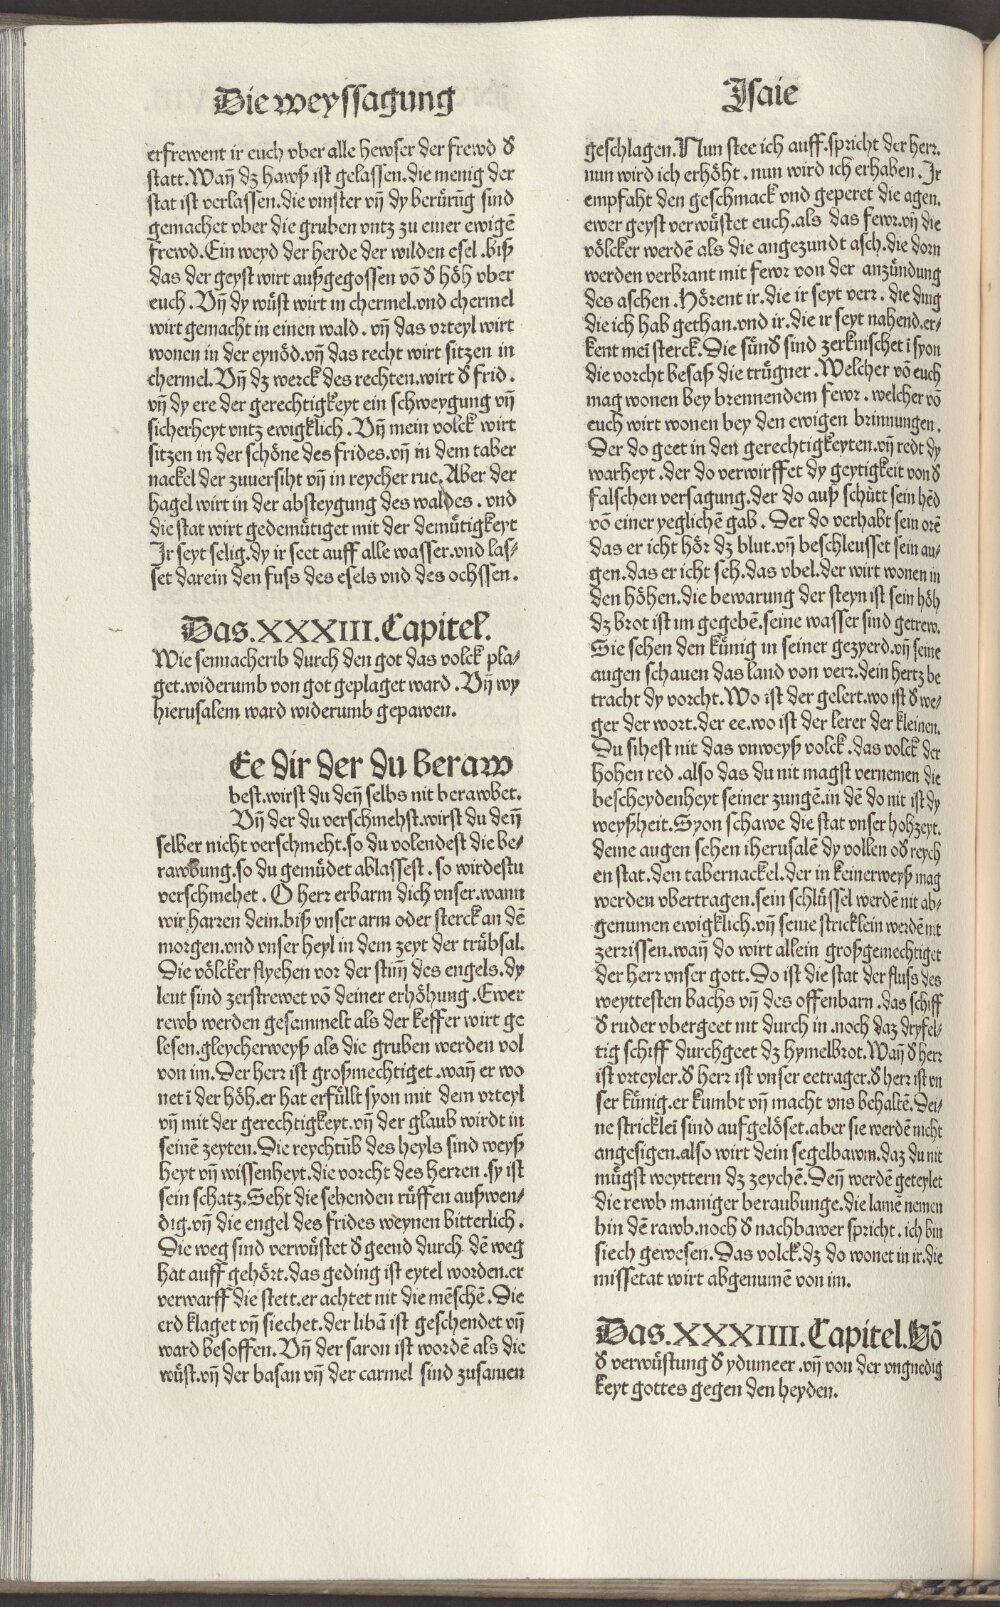 Die weyssagung
Isaie
erfrewent ir euch vber alle hewser der frewd đ
statt. Wañ dz hawß ist gelassen. die menig der
stat ist verlassen. die vinster vñ dy berürũg sind
gemachet vber die gruben vntz zu einer ewigē
frewd. Ein weyd der herde der wilden esel. biß
das der geyst wirt außgegossen võ đ höh vber
euch. Vñ dy wüst wirt in chermel. vnd chermel
wirt gemacht in einen wald. vñ das vrteyl wirt
wonen in der eynöd. vñ das recht wirt sitzen in
chermel. Vñ dz werck des rechten. wirt đ frid.
vñ dy ere der gerechtigkeyt ein schweygung vñ
sicherheyt vntz ewigklich. Vñ mein volck wirt
sitzen in der schöne des frides. vñ in dem taber
nackel der zuuersiht vñ in reycher rue. Aber der
hagel wirt in der absteygung des waldes. vnd
die stat wirt gedemütiget mit der demütigkeyt
Ir seyt selig. dy ir seet auff alle wasser. vnd las⸗
set darein den fuss des esels vnd des ochssen.
Das. XXXIII. Capitel.
Wie sennacherib durch den got das volck pla⸗
get. widerumb von got geplaget ward. Vñ wy
hierusalem ward widerumb gepawen.
Ee dir der du beraw
best. wirst du deñ selbs nit berawbet.
Vñ der du verschmehst. wirst du deñ
selber nicht verschmeht. so du volendest die be⸗
rawbung. so du gemüdet ablassest. so wirdestu
verschmehet. O herr erbarm dich vnser. wann
wir harren dein. biß vnser arm oder sterck an dē
morgen. vnd vnser heyl in dem zeyt der trübsal.
Die völcker flyehen vor der stiñ des engels. dy
leut sind zerstrewet võ deiner erhöhung. Ewer
rewb werden gesammelt als der keffer wirt ge
lesen. gleycherweyß als die gruben werden vol
von im. Der herr ist großmechtiget. wañ er wo
net ī der höh. er hat erfüllt syon mit dem vrteyl
vñ mit der gerechtigkeyt. vñ der glaub wirdt in
seinē zeyten. Die reychtũb des heyls sind weyß
heyt vñ wissenheyt. die vorcht des herren. sy ist
sein schatz. Seht die sehenden rüffen außwen⸗
dig. vñ die engel des frides weynen bitterlich.
Die weg sind verwüstet đ geend durch dē weg
hat auff gehört. das geding ist eytel worden. er
verwarff die stett. er achtet nit die mēschē. Die
erd klaget vñ siechet. der libã ist geschendet vñ
ward besoffen. Vñ der saron ist wordē als die
wüst. vñ der basan vñ der carmel sind zusamen
geschlagen. Nun stee ich auff. spricht der herr.
nun wird ich erhöht. nun wird ich erhaben. Ir
empfaht den geschmack vnd geperet die agen.
ewer geyst verwüstet euch. als das fewr. vñ die
völcker werdē als die angezundt asch. die dorn
werden verbrant mit fewr von der anzündung
des aschen. Hörent ir. die ir seyt verr. die ding
die ich hab gethan. vnd ir. die ir seyt nahend. er⸗
kent meī sterck. Die sünđ sind zerknischet ī syon
die vorcht besaß die trügner. Welcher võ euch
mag wonen bey brennendem fewr. welcher võ
euch wirt wonen bey den ewigen brinnungen.
Der do geet in den gerechtigkeyten. vñ redt dy
warheyt. der do verwirffet dy geytigkeit von đ
falschen versagung. der do auß schütt sein hēd
võ einer yeglichē gab. Der do verhabt sein orē
das er icht hör dz blut. vñ beschleusset sein au⸗
gen. das er icht seh. das vbel. der wirt wonen in
den höhen. die bewarung der steyn ist sein höh
dz brot ist im gegebē. seine wasser sind getrew.
Sie sehen den künig in seiner gezyerd. vñ seine
augen schauen das land von verr. dein hertz be
tracht dy vorcht. Wo ist der gelert. wo ist đ we⸗
ger der wort. der ee. wo ist der lerer der kleinen.
Du sihest nit das vnweyß volck. das volck der
hohen red. also das du nit magst vernemen die
bescheydenheyt seiner zungē. in dē do nit ist dy
weyßheit. Syon schawe die stat vnser hohzeyt.
deine augen sehen iherusalē dy vollen ođ reych
en stat. den tabernackel. der in keinerweyß mag
werden vbertragen. sein schlüssel werdē nit ab⸗
genumen ewigklich. vñ seine stricklein werdē nit
zerrissen. wañ do wirt allein großgemechtiget
der herr vnser gott. Do ist die stat der fluß des
weyttesten bachs vñ des offenbarn. das schiff
đ ruder vbergeet nit durch in. noch daz dryfel⸗
tig schiff durchgeet dz hymelbrot. Wañ đ herr
ist vrteyler. đ herr ist vnser eetrager. đ herr ist vn
ser künig. er kumbt vñ macht vns behaltē. Dei⸗
ne stricklei sind aufgelöset. aber sie werdē nicht
angesigen. also wirt dein segelbawm. daz du nit
mügst weyttern dz zeychē. Deñ werdē geteylet
die rewb maniger beraubunge. die lamē nemen
hin dē rawb. noch đ nachbawer spricht. ich bin
siech gewesen. Das volck. dz do wonet in ir. die
missetat wirt abgenumē von im.
Das. XXXIIII. Capitel. Võ
đ verwüstung đ ydumeer. vñ von der vngnedig
keyt gottes gegen den heyden.